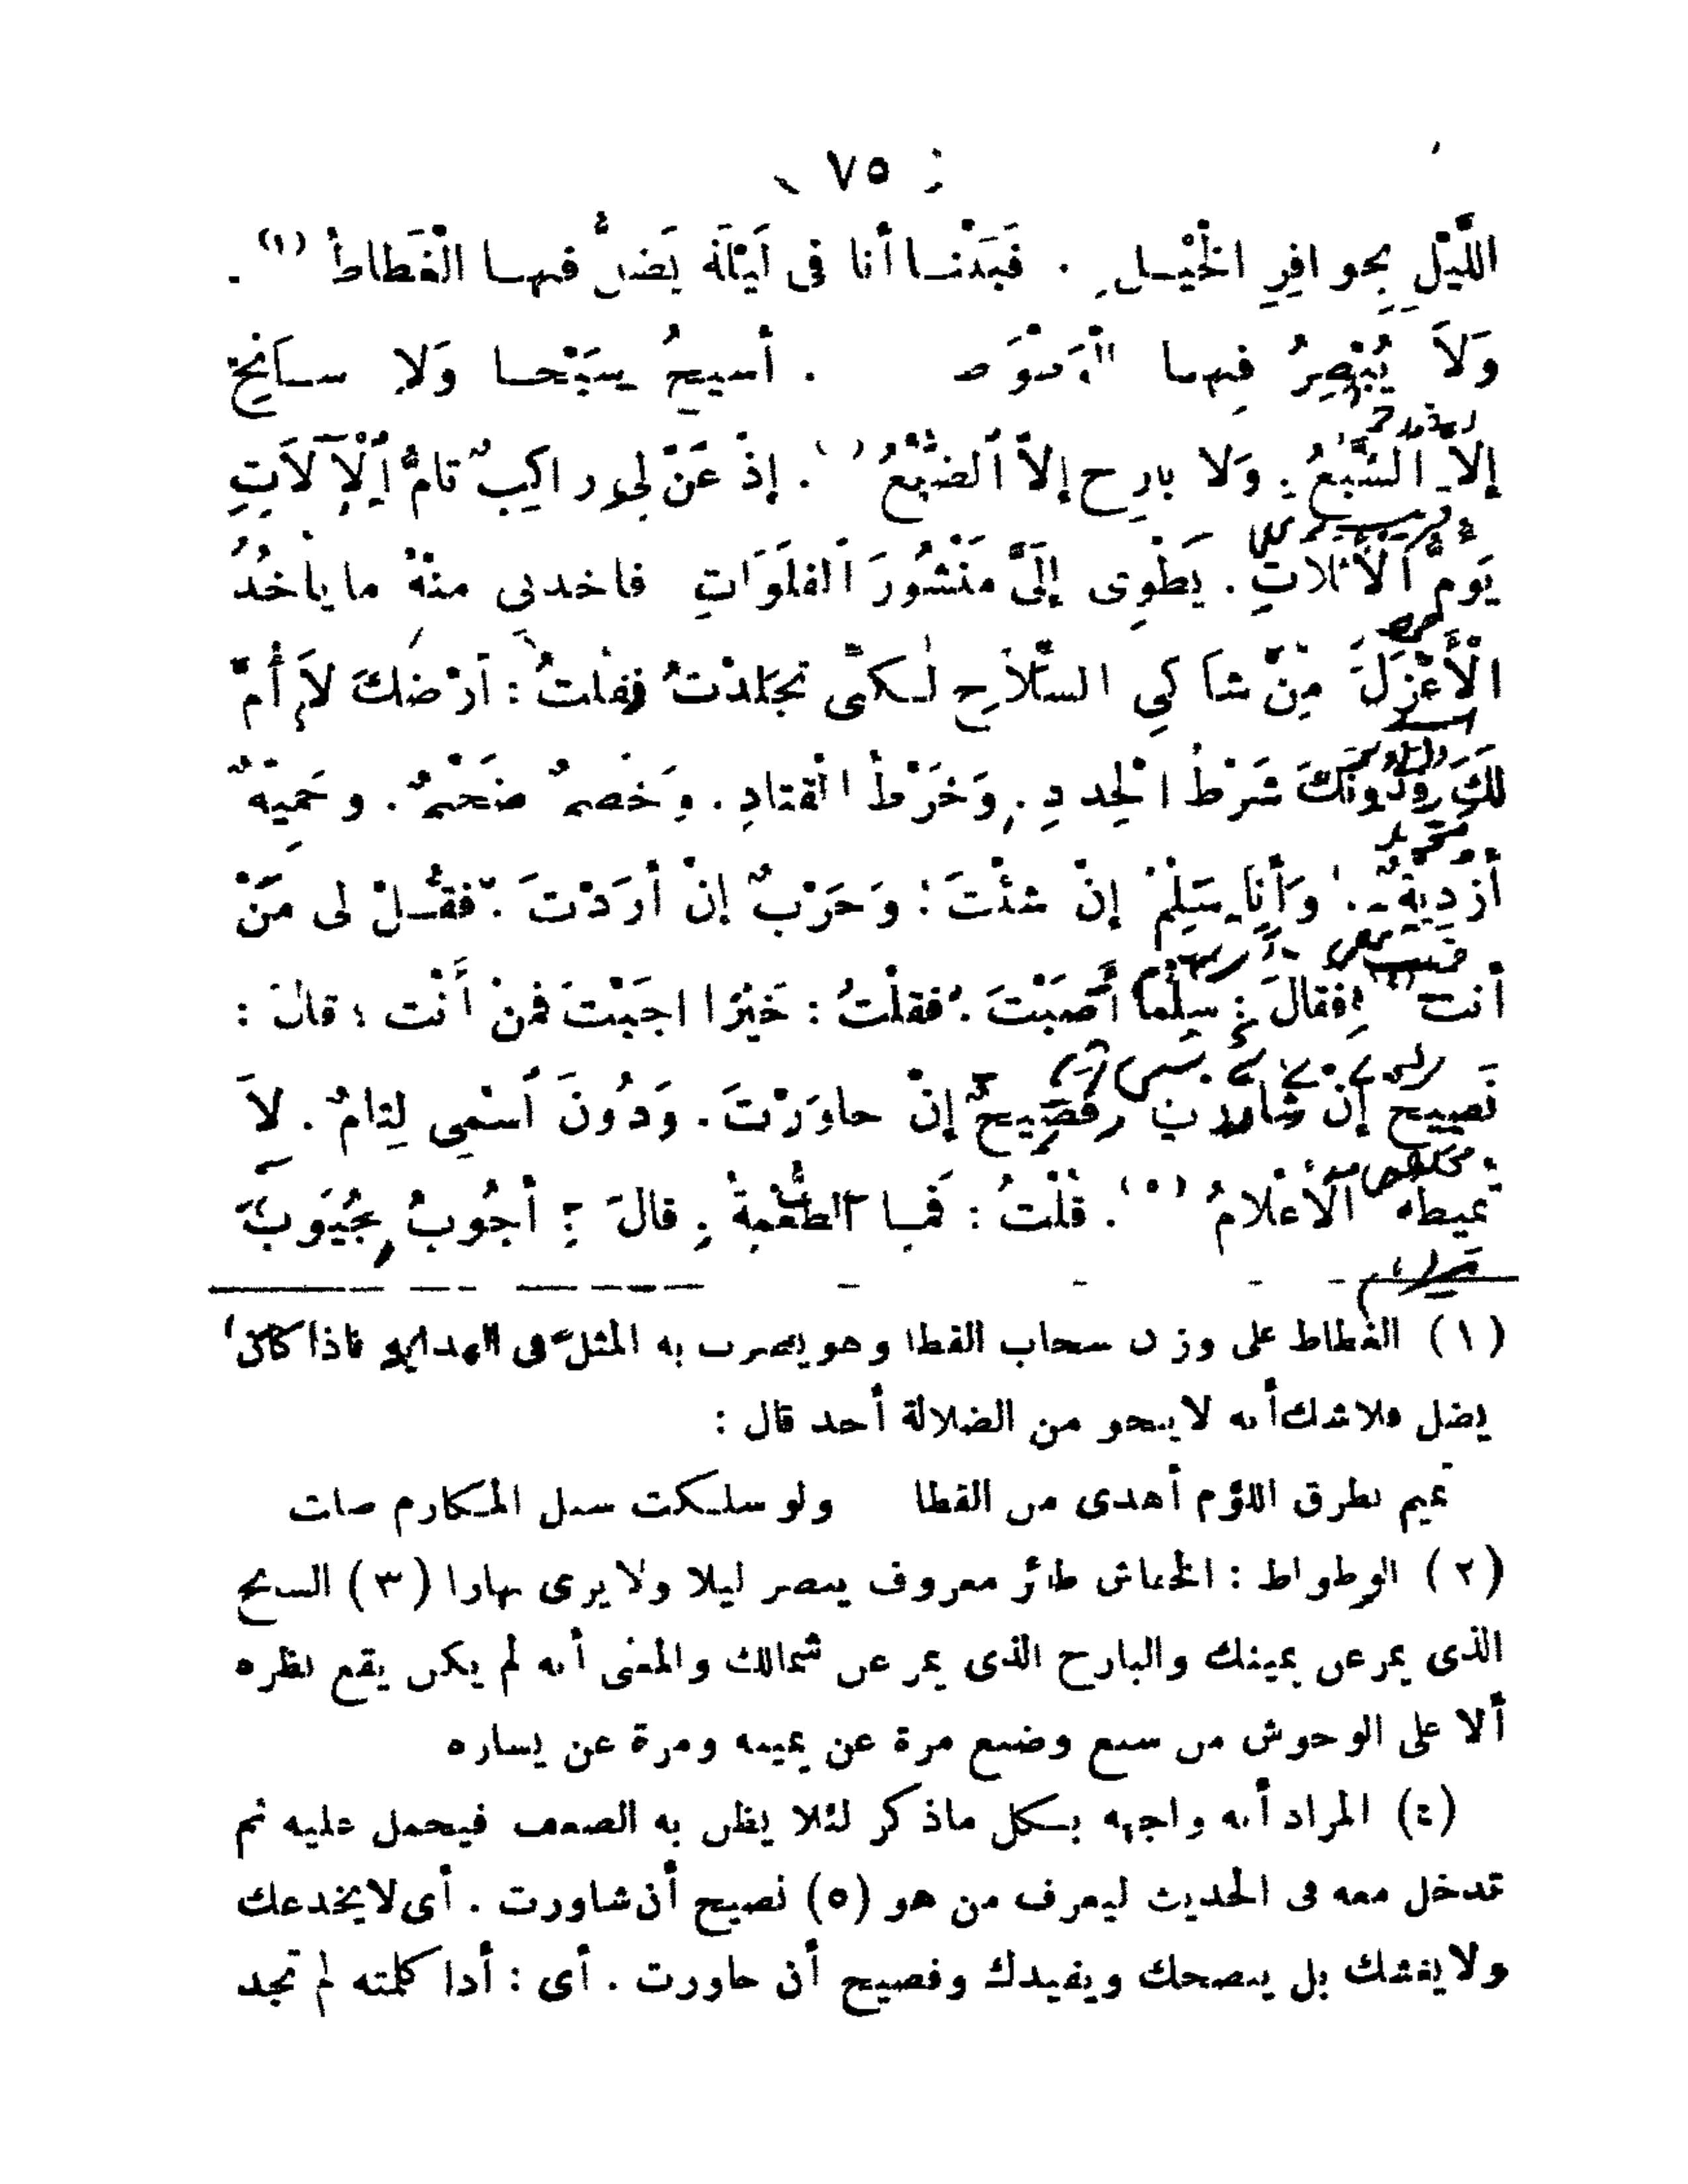 ٧٥
اللَّيْلِ بِحوافِرِ الخَيْلِ . فَبَيْنا أنا فى لَيْلَةٍ يَضلُّ فيها الْغَطاطُ (١) .
وَلاَ يُبْصِرُ فِيها . أسيحُ سَبْحا وَلا سانِحَ
إلاّ السَّبُعُ . وَلا بارِح إلاّ الضَّبُعُ . إذْ عَنّ لى راكِبٌ تامُّ الآلاَتِ
يَومُّ الأثلاتِ . يَطْوِى إلَىَّ مَنْشُورَ الفلَوَاتِ فاخذنى منهُ ما يأخذُ
الْأَعْزَلَ مِنْ شاكِي السّلاَحِ لكنى تجَلدْتُ فقلتُ : أرْضَكَ لاَ أُمّ
لكَ وَدُونكَ شَرْطُ الحِدادِ . وَخَرْطُ القتادِ . وَخَصمٌ ضَخْمٌ . وحَمِيَّةٌ
أزْدِيةٌ . وَأنا سَلِمْ إنْ شئْتَ : وَحَرْبٌ إنْ أرَدْتَ . فقُلْ لى مَنْ
أنت (٤) فقالَ : سِلْمًا أصَبْتَ . فقلْتُ : خَيْرًا اجَبْتَ فمنْ أنت ؛ قال :
نَصيح إنْ شاورتَ وفَصِيحٌ إنْ حاوَرْتَ . وَدُونَ أسْمِى لِثامٌ . لاَ
تميطهُ الأعْلامُ (٥) . قلْتُ : فما الطُّعْمةُ . قالَ : أجُوبُ جُيُوبَ
(١) الغطاط على وزن سحاب القطا وهو يضرب به المثل فى الهداية فاذا كان
يضل فلا شك أنه لا ينجو من الضلالة أحد قال :
تميم بطرق اللؤم أهدى من القطا ولو سلكت سبل المكارم ضلت
(٢) الوطواط : الخفاش طائر معروف يبصر ليلا ولا يرى نهارا (٣) السانح
الذى يمر عن يمينك والبارح الذى يمر عن شمالك والمعنى أنه لم يكن يقع نظره
ألا على الوحوش من سبع وضبع مرة عن يمينه ومرة عن يساره
(٤) المراد أنه واجهه بكل ماذكر لئلا يظن به الضعف فيحمل عليه ثم
تدخل معه فى الحديث ليعرف من هو (٥) نصيح أن شاورت . أى لا يخدعك
ولا يغشك بل ينصحك ويفيدك وفصيح أن حاورت . أى : أذا كلمته لم تجد